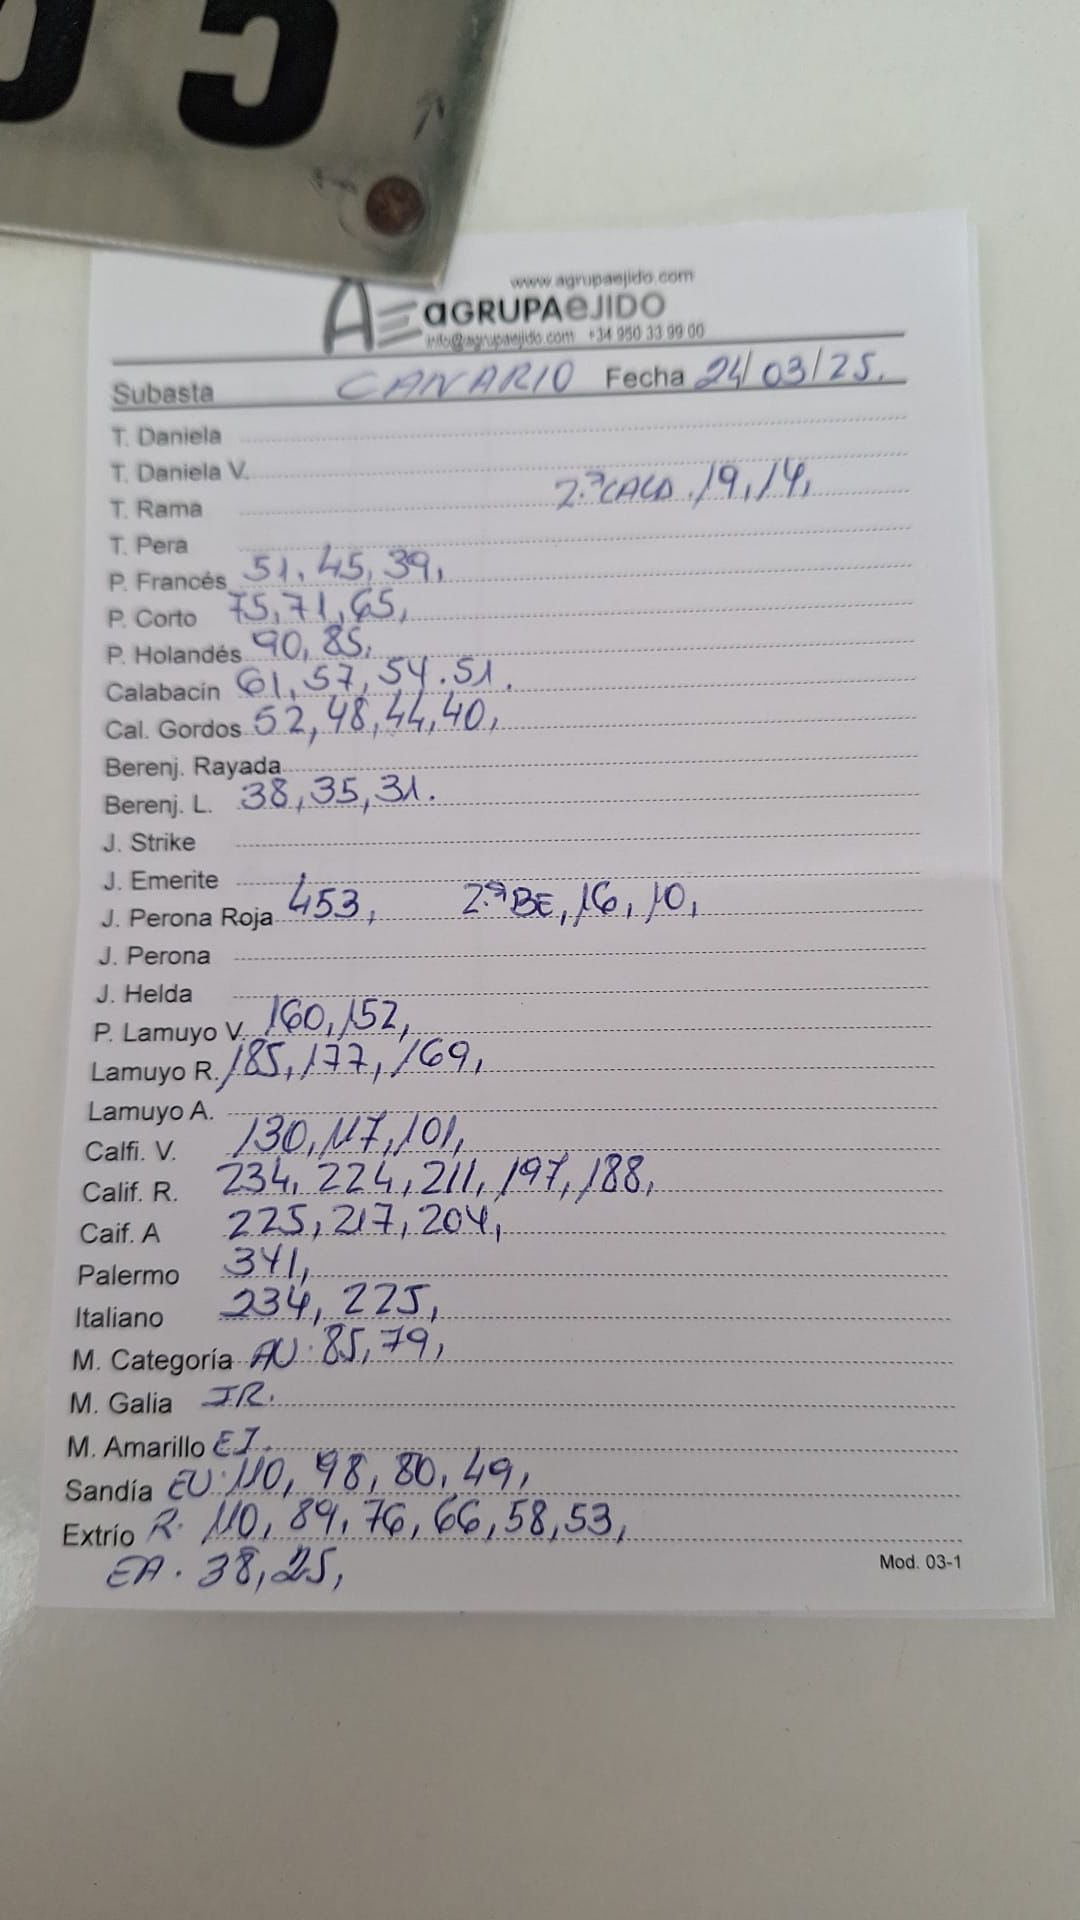 05
www.agrupaejido.com
AE aGRUPAeJIDO
info@agrupaejido.com +34 950 33 99 00
Subasta CANARIO Fecha 24/03/25.
T. Daniela
T. Daniela V.
T. Rama 2.ª CALA. 19, 14,
T. Pera
P. Francés 51, 45, 39,
P. Corto 75, 71, 65,
P. Holandés 90, 85,
Calabacín 61, 57, 54. 51.
Cal. Gordos 52, 48, 44, 40,
Berenj. Rayada
Berenj. L. 38, 35, 31.
J. Strike
J. Emerite
J. Perona Roja 453, 2.ª BE, 16, 10,
J. Perona
J. Helda
P. Lamuyo V. 160, 152,
Lamuyo R. 185, 177, 169,
Lamuyo A.
Calfi. V. 130, 117, 101,
Calif. R. 234, 224, 211, 197, 188,
Caif. A 225, 217, 204,
Palermo 341,
Italiano 234, 225,
M. Categoría AU. 85, 79,
M. Galia IR.
M. Amarillo EJ.
Sandía EU. 110, 98, 80, 49,
Extrío R. 110, 89, 76, 66, 58, 53,
EA. 38, 25,
Mod. 03-1